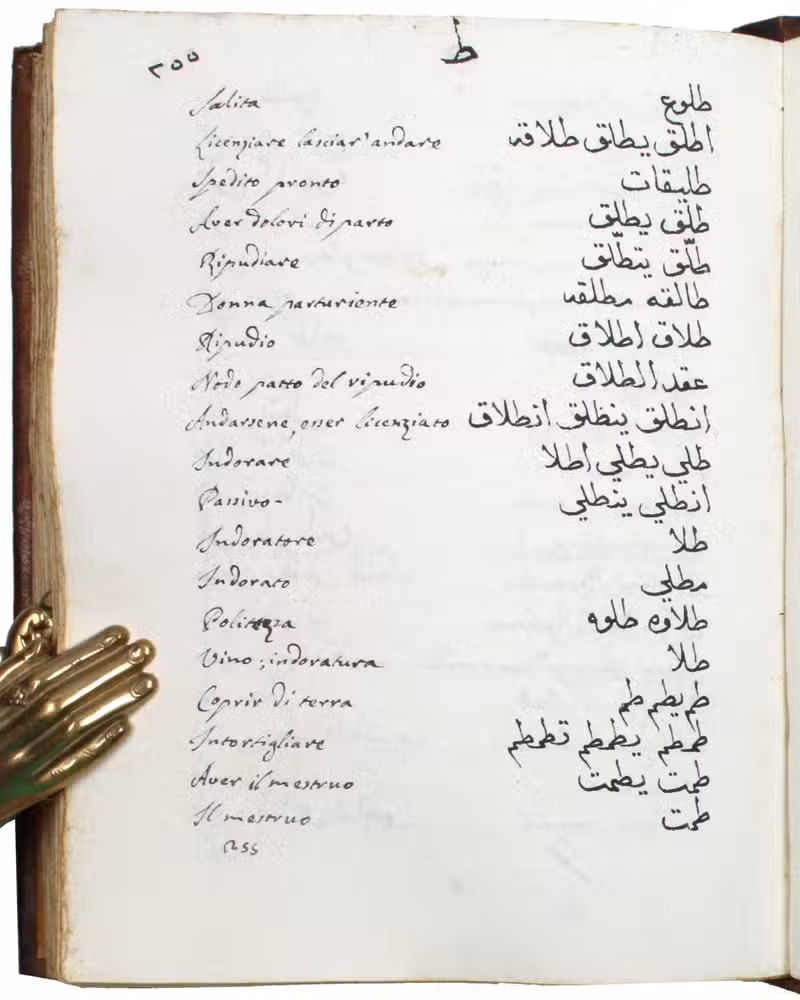 ٢٥٥ ط
Salita طلوع
Licenziare lasciar' andare اطلق يطلق طلاقه
Spedito pronto طليقات
Aver dolori di parto طلق يطلق
Ripudiare طلّق يتطلّق
Donna parturiente طالقه مطلقه
Ripudio طلاق اطلاق
Nodo patto del ripudio عقد الطلاق
Andarsene, esser licenziato انطلق ينطلق انطلاق
Indorare طلي يطلي اطلا
Passivo- انطلي ينطلي
Indoratore طلا
Indorato مطلي
Politezza طلاوه طلوه
Vino; indoratura طلا
Coprir di terra طم يطم طم
Intortigliare طمطم يطمطم تطمطم
Aver il mestruo طمت يطمت
Il mestruo طمت
255